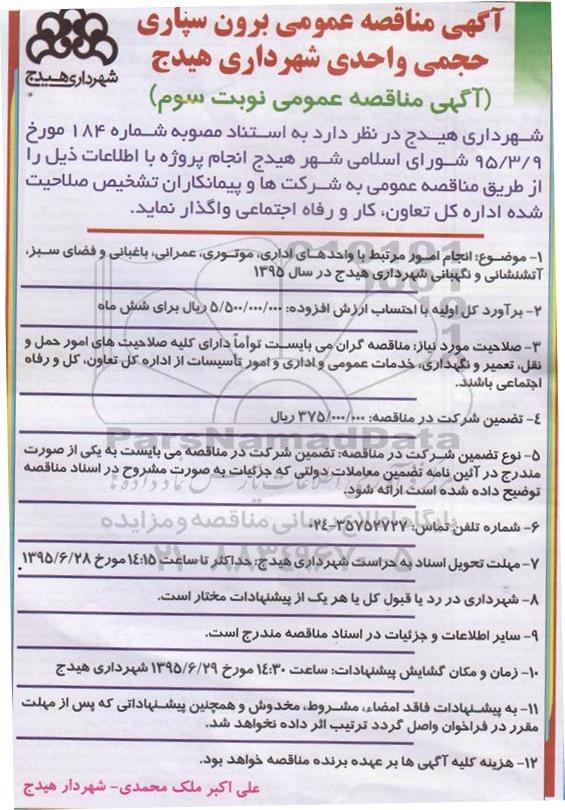 آگهی مناقصه عمومی برون سپاری
حجمی واحدی شهرداری هیدج
(آگهی مناقصه عمومی نوبت سوم)
شهرداری هیدج
شهرداری هیدج در نظر دارد به استناد مصوبه شماره ۱۸۴ مورخ
۹۵/۳/۹ شورای اسلامی شهر هیدج انجام پروژه با اطلاعات ذیل را
از طریق مناقصه عمومی به شرکت ها و پیمانکاران تشخیص صلاحیت
شده اداره کل تعاون، کار و رفاه اجتماعی واگذار نماید.
۱- موضوع: انجام امور مرتبط با واحدهای اداری، موتوری، عمرانی، باغبانی و فضای سبز،
آتشنشانی و نگهبانی شهرداری هیدج در سال ۱۳۹۵
۲- برآورد کل اولیه با احتساب ارزش افزوده: ۵/۵۰۰/۰۰۰/۰۰۰ ریال برای شش ماه
۳- صلاحیت مورد نیاز: مناقصه گران می بایست تواماً دارای کلیه صلاحیت های امور حمل و
نقل، تعمیر و نگهداری، خدمات عمومی و اداری و امور تأسیسات از اداره کل تعاون، کل و رفاه
اجتماعی باشند.
۴- تضمین شرکت در مناقصه: ۳۷۵/۰۰۰/۰۰۰ ریال
۵- نوع تضمین شرکت در مناقصه: تضمین شرکت در مناقصه می بایست به یکی از صورت
مندرج در آئین نامه تضمین معاملات دولتی که جزئیات به صورت مشروح در اسناد مناقصه
توضیح داده شده است ارائه شود.
۶- شماره تلفن تماس: ۳۵۷۵۲۷۲۷-۰۲۴
۷- مهلت تحویل اسناد به حراست شهرداری هیدج: حداکثر تا ساعت ۱۴:۱۵ مورخ ۱۳۹۵/۶/۲۸
۸- شهرداری در رد یا قبول کل یا هر یک از پیشنهادات مختار است.
۹- سایر اطلاعات و جزئیات در اسناد مناقصه مندرج است.
۱۰- زمان و مکان گشایش پیشنهادات: ساعت ۱۴:۳۰ مورخ ۱۳۹۵/۶/۲۹ شهرداری هیدج
۱۱- به پیشنهادات فاقد امضاء، مشروط، مخدوش و همچنین پیشنهاداتی که پس از مهلت
مقرر در فراخوان واصل گردد ترتیب اثر داده نخواهد شد.
۱۲- هزینه کلیه آگهی ها بر عهده برنده مناقصه خواهد بود.
علی اکبر ملک محمدی- شهردار هیدج
ParsNamadData
پایگاه اطلاع رسانی مناقصه و مزایده